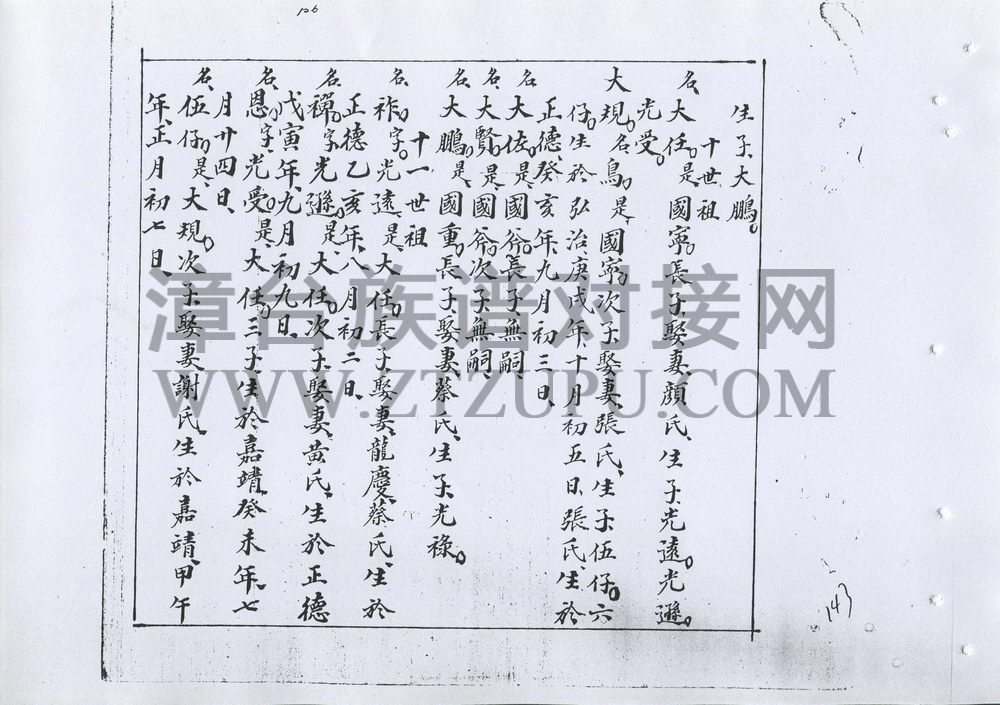 106
生子、大鵬。
十世祖
名、大任。是、國寧長子、娶妻、顏氏、生子、光遠。光遜。
光受。
大規。名、鳥。是、國寧次子、娶妻、張氏、生子、伍仔。六
仔。生於弘治庚戌年、十月初五日、張氏、生於
正德、癸亥年、九月初三日、
名、大佐。是、國爺長子、無嗣、
名、大賢。是、國爺次子、無嗣、
名、大鵬。是、國重。長子、娶妻、蔡氏、生子、光祿。
十一世祖
名、祚。字。光遠、是、大任。長子、娶妻、龍慶、蔡氏、生於
正德乙亥年、八月初二日、
名、禪。字、光遜。是、大任。次子、娶妻、黃氏、生於正德
戊寅年、九月初九日、
名、恩。字、光受。是、大任。三子、生於嘉靖、癸未年、七
月廿四日、
名、伍仔。是、大規。次子、娶妻、謝氏、生於嘉靖、甲午
年、正月初七日、
143
漳台族谱对接网
WWW.ZTZUPU.COM